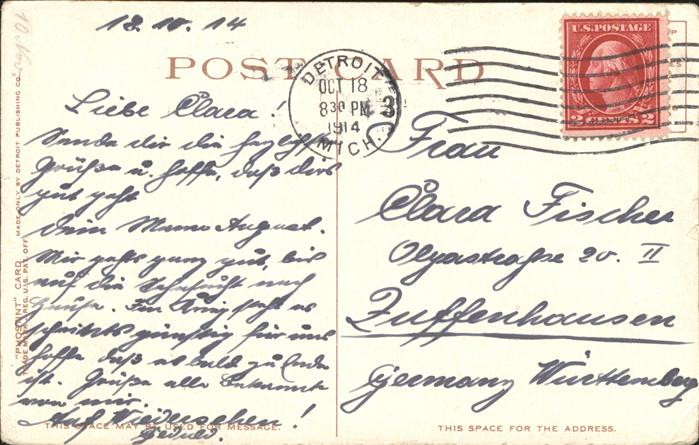 18.10.14
10. Nov.
POST CARD
U.S. POSTAGE
2 CENTS 2
DETROIT
OCT 18
8 30 PM
1914
MICH.
3
Liebe Clara!
Sende dir die herzlichsten
Grüße u. hoffe, daß dirs
gut geht
dein Mann August.
Mir gehts ganz gut, bis
auf die Sehnsucht nach
Hause. Im Krieg steht es
günstig für uns
hoffe daß es bald zu Ende
ist. Grüße alle Bekannte
von mir.
Auf Wiedersehen!
Frau
Clara Fischer
Olgastraße 20. II
Zuffenhausen
Germany Württemberg
"PHOSTINT" CARD MADE ONLY BY DETROIT PUBLISHING CO.
TRADE MARK REG. U.S. PAT. OFF.
THIS SPACE MAY BE USED FOR MESSAGE.
THIS SPACE FOR THE ADDRESS.